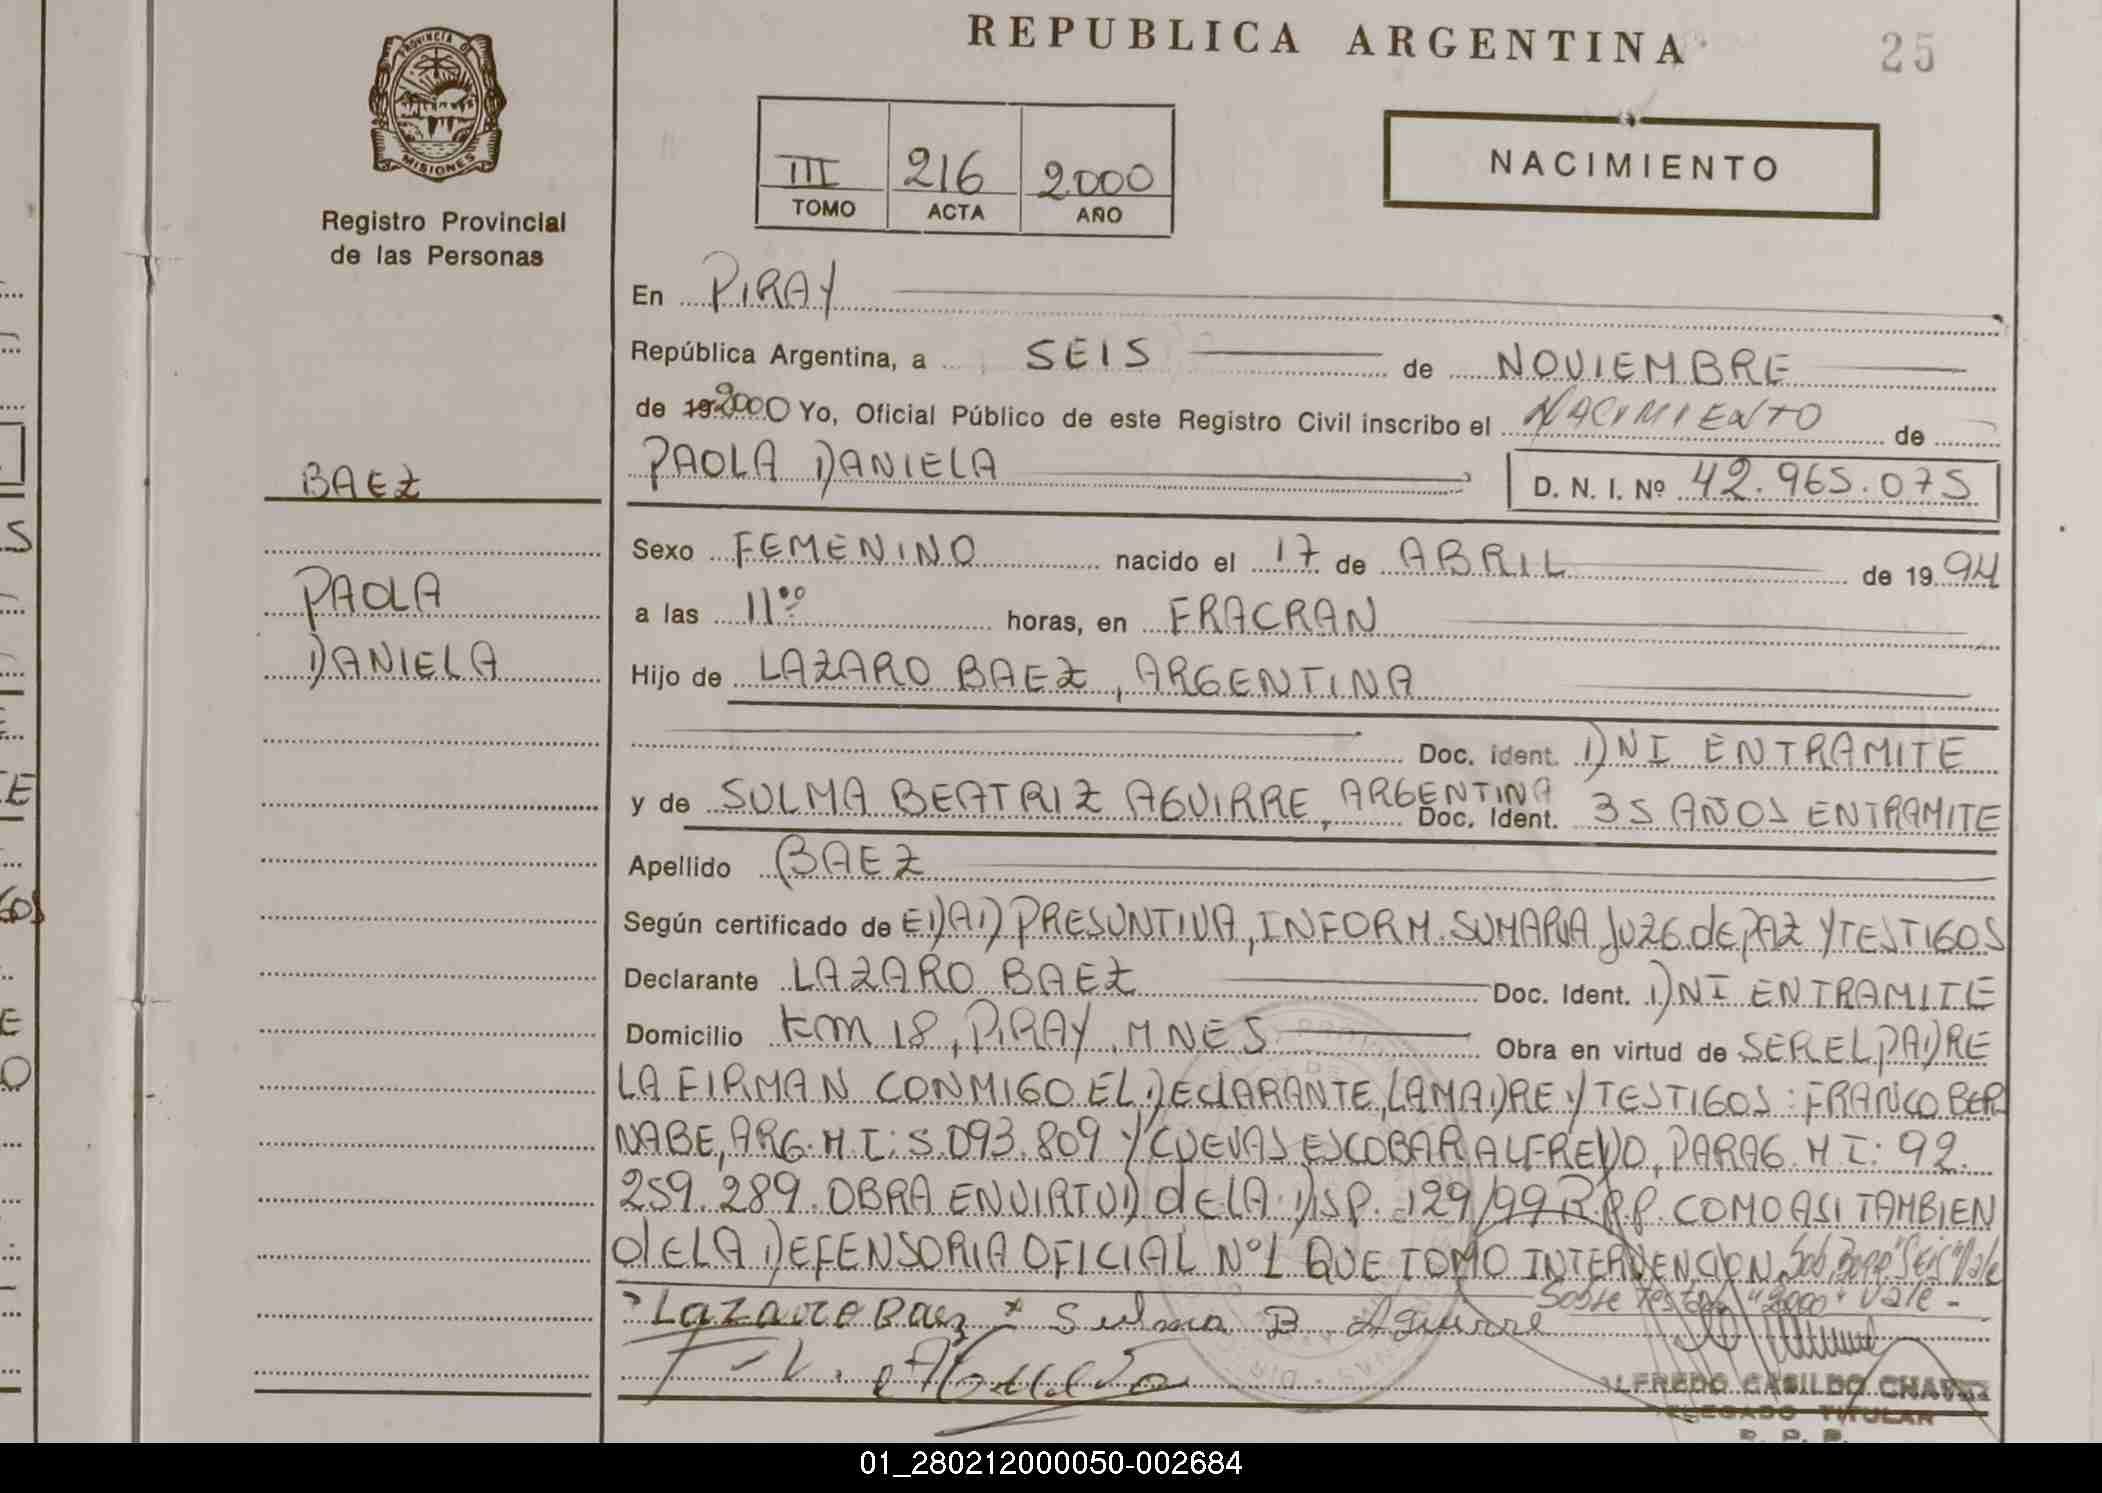 REPUBLICA ARGENTINA
25
PROVINCIA DE MISIONES
Registro Provincial
de las Personas
III 216 2000
TOMO ACTA AÑO
NACIMIENTO
En PIRAY
República Argentina, a SEIS de NOVIEMBRE
de 19 2000 Yo, Oficial Público de este Registro Civil inscribo el NACIMIENTO de
PAOLA DANIELA D. N. I. Nº 42.965.075
BAEZ
PAOLA
DANIELA
Sexo FEMENINO nacido el 17 de ABRIL de 1994
a las 11⁰⁰ horas, en FRACRAN
Hijo de LAZARO BAEZ, ARGENTINA
Doc. ident. DNI ENTRAMITE
y de SULMA BEATRIZ AGUIRRE, ARGENTINA Doc. Ident. 35 AÑOS ENTRAMITE
Apellido BAEZ
Según certificado de EDAD PRESUNTIVA, INFORM. SUMARIA JUZG. dE PAZ Y TESTIGOS
Declarante LAZARO BAEZ Doc. Ident. DNI ENTRAMITE
Domicilio Km 18, PIRAY, MNES Obra en virtud de SER EL PADRE
LA FIRMAN CONMIGO EL DEClARANTE, LA MADRE Y TESTIGOS: FRANCO BER
NABE, ARG. M.I: 5.093.809 Y CUEVAS ESCOBAR ALFREDO, PARAG. M I: 92.
259.289. OBRA EN VIRTUD dE LA DISP. 129/99 R.P.P. COMO ASI TAMBIEN
dE LA DEFENSORIA OFICIAL Nº1 QUE TOMO INTERVENCION. Sob. Borr "Seis" Vale
Sobre Testado "2000" Vale -
Lazaro Baez x Sulma B Aguirre
ALFREDO CASILDO CHAVEZ
DELEGADO TITULAR
R. P. P.
01_280212000050-002684